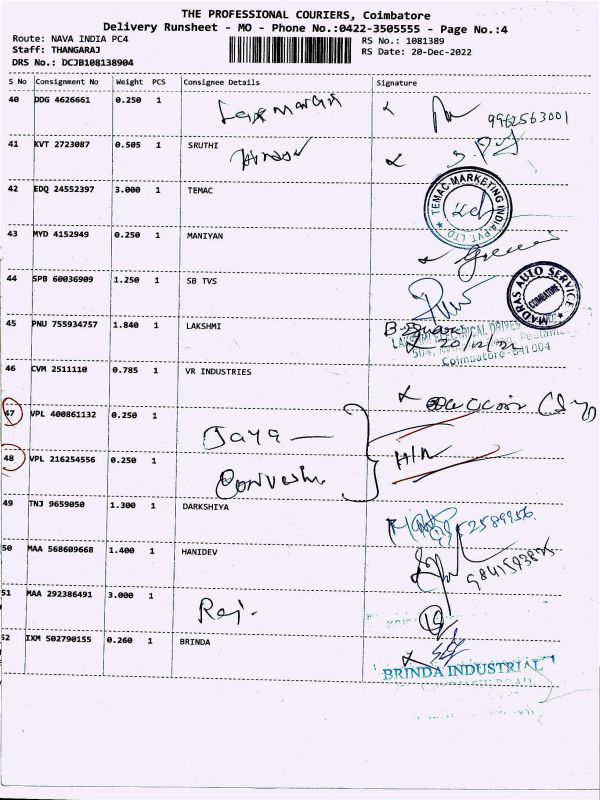 THE PROFESSIONAL COURIERS, Coimbatore
Delivery Runsheet - MO - Phone No.:0422-3505555 - Page No.:4
Route: NAVA INDIA PC4
RS No.: 1081389
Staff: THANGARAJ
RS Date: 20-Dec-2022
DRS No.: DCJB108138904
S No Consignment No Weight PCS Consignee Details Signature
40 DDG 4626661 0.250 1 9962563001
41 KVT 2723087 0.505 1 SRUTHI
42 EDQ 24552397 3.000 1 TEMAC
TEMAC-MARKETING INDIA PVT. LTD
43 MYD 4152949 0.250 1 MANIYAN
44 SPB 60036909 1.250 1 SB TVS
MADRAS AUTO SERVICE
COIMBATORE
45 PNU 755934757 1.840 1 LAKSHMI
20/12/22
504,
Coimbatore-641004
46 CVM 2511110 0.785 1 VR INDUSTRIES
47 VPL 400861132 0.250 1
Jaya
48 VPL 216254556 0.250 1
49 TNJ 9659050 1.300 1 DARKSHIYA
50 MAA 568609668 1.400 1 HANIDEV
51 MAA 292386491 3.000 1 Raj.
52 IXM 502790155 0.260 1 BRINDA
BRINDA INDUSTRIAL